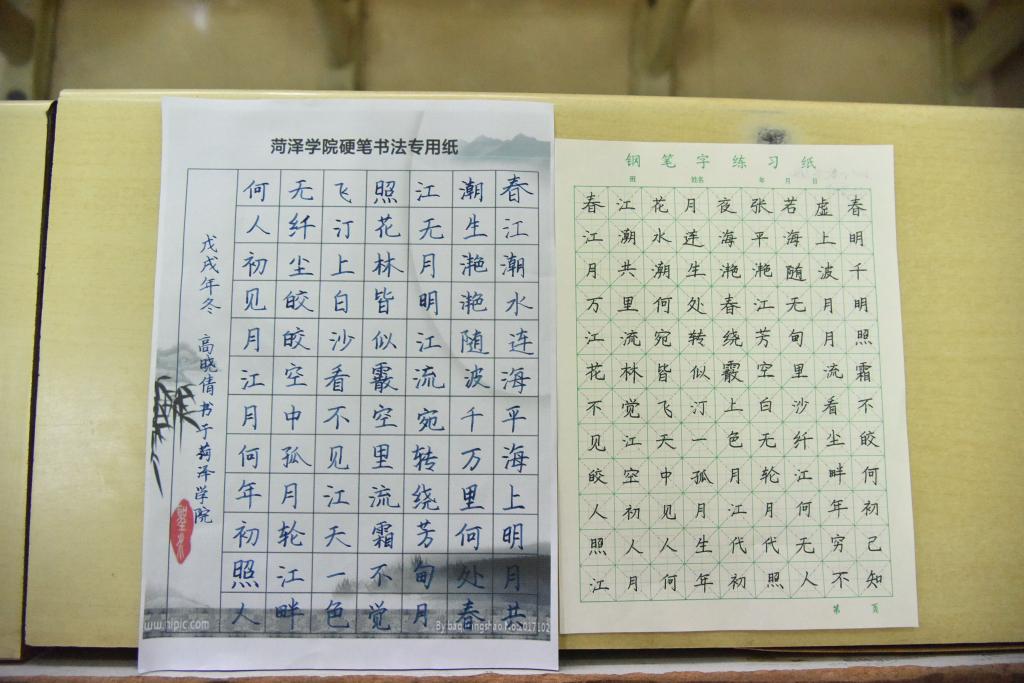 菏泽学院硬笔书法专用纸
春江潮水连海平海上明月共
潮生滟滟随波千万里何处春
江无月明江流宛转绕芳甸月
照花林皆似霰空里流霜不觉
飞汀上白沙看不见江天一色
无纤尘皎皎空中孤月轮江畔
何人初见月江月何年初照人
戊戌年冬 高晓倩书于菏泽学院
www.nipic.com
钢笔字练习纸
班 姓名 年 月 日
春江花月夜张若虚春
江潮水连海平海上明
月共潮生滟滟随波千
万里何处春江无月明
江流宛转绕芳甸月照
花林皆似霰空里流霜
不觉飞汀上白沙看不
见江天一色无纤尘皎
皎空中孤月轮江畔何
人初见月江月何年初
照人人生代代无穷己
江月何年初照人不知
第 页